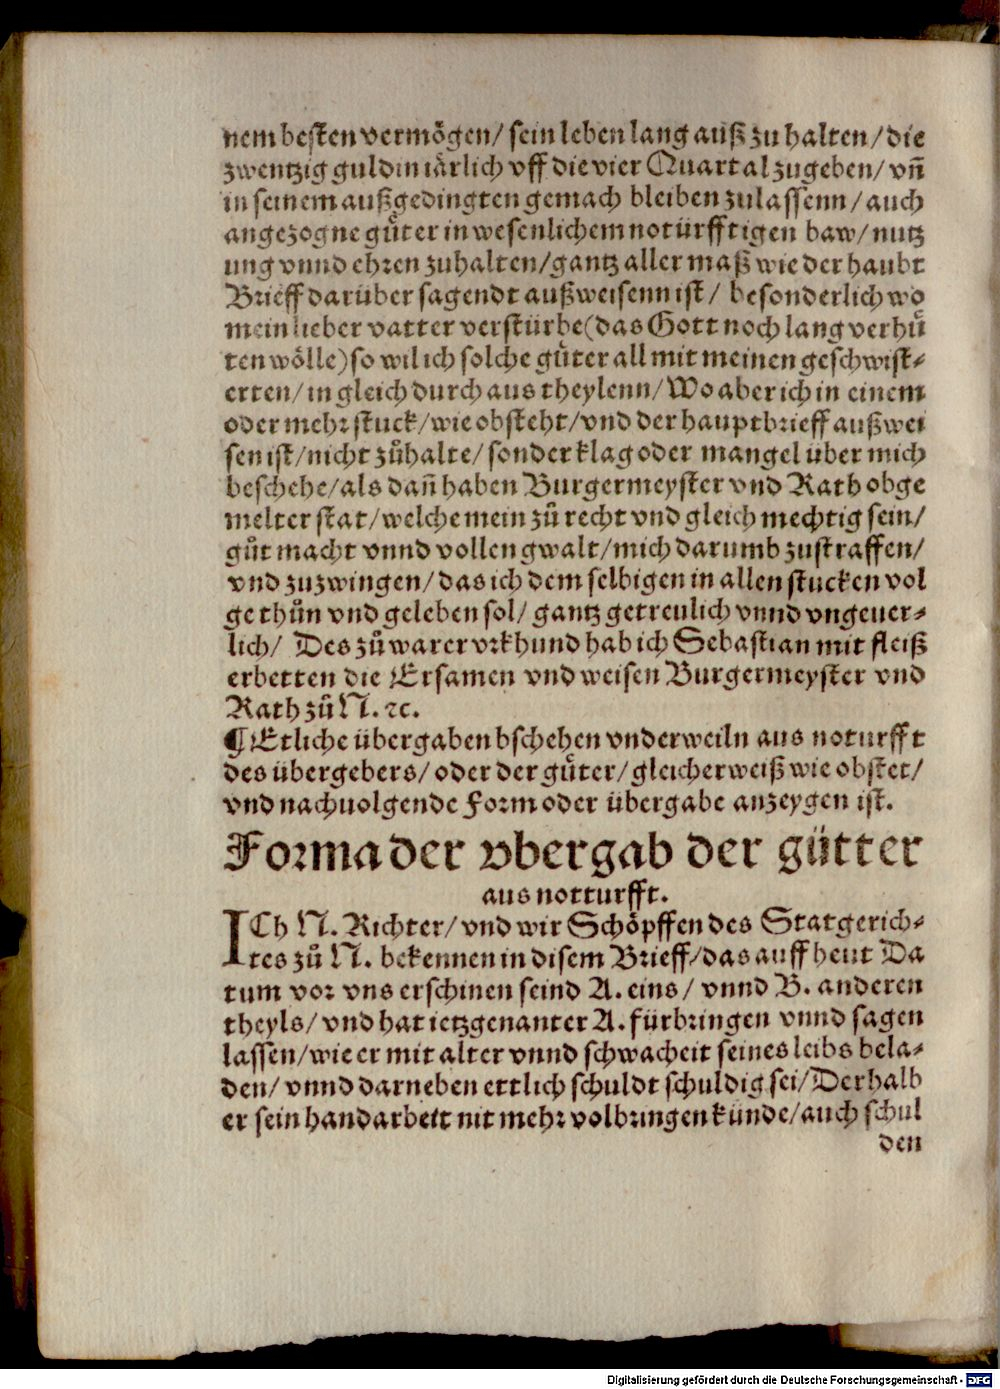 nem besten vermögen/ sein leben lang auß zu halten/ die
zwentzig guldin iärlich vff die vier Quartal zugeben/ vñ
in seinem außgedingten gemach bleiben zulassenn/ auch
angezogne gůter in wesenlichem notürfftigen baw/ nutz
ung vnnd ehren zuhalten/ gantz aller maß wie der haubt
Brieff darüber sagendt außweisenn ist/ besonderlich wo
mein lieber vatter verstürbe (das Gott noch lang verhů
ten wölle) so wil ich solche gůter all mit meinen geschwist-
erten/ in gleich durch aus theylenn/ Wo aber ich in einem
oder mehr stuck/ wie obsteht/ vnd der hauptbrieff außwei
sen ist/ nicht zůhalte/ sonder klag oder mangel über mich
beschehe/ als dañ haben Burgermeyster vnd Rath obge
melter stat/ welche mein zů recht vnd gleich mechtig sein/
gůt macht vnnd vollen gwalt/ mich darumb zustraffen/
vnd zuzwingen/ das ich dem selbigen in allen stucken vol
ge thůn vnd geleben sol/ gantz getreulich vnnd vngeuer-
lich/ Des zů warer vrkhund hab ich Sebastian mit fleiß
erbetten die Ersamen vnd weisen Burgermeyster vnd
Rath zů N. ⁊c.
¶ Etliche übergaben bschehen vnderweiln aus noturfft
des übergebers/ oder der gůter/ gleicherweiß wie obstet/
vnd nachuolgende Form oder übergabe anzeygen ist.
Forma der vbergab der gütter
aus notturfft.
ICh N. Richter/ vnd wir Schöpffen des Statgerich-
tes zů N. bekennen in disem Brieff/ das auff heut Da
tum vor vns erschinen seind A. eins/ vnnd B. anderen
theyls/ vnd hat ietzgenanter A. fürbringen vnnd sagen
lassen/ wie er mit alter vnnd schwacheit seines leibs bela-
den/ vnnd darneben ettlich schuldt schuldig sei/ Derhalb
er sein handarbeit nit mehr volbringen künde/ auch schul
den
Digitalisierung gefördert durch die Deutsche Forschungsgemeinschaft - DFG